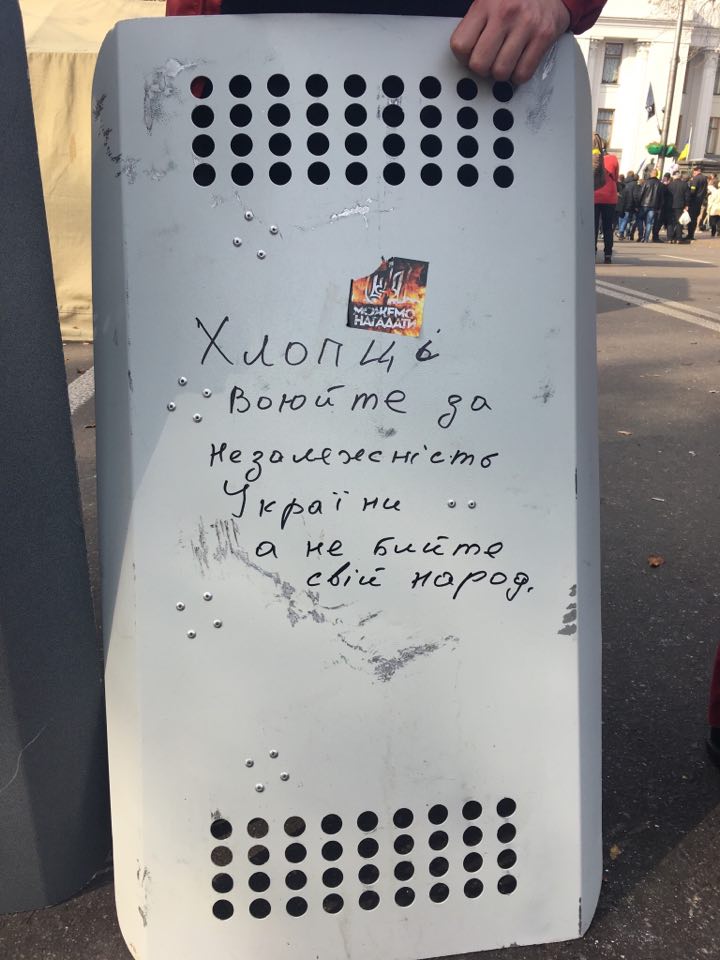 МОЖЕМО
НАГАДАТИ
Хлопці
Воюйте за
незалежність
України
а не бийте
свій народ.